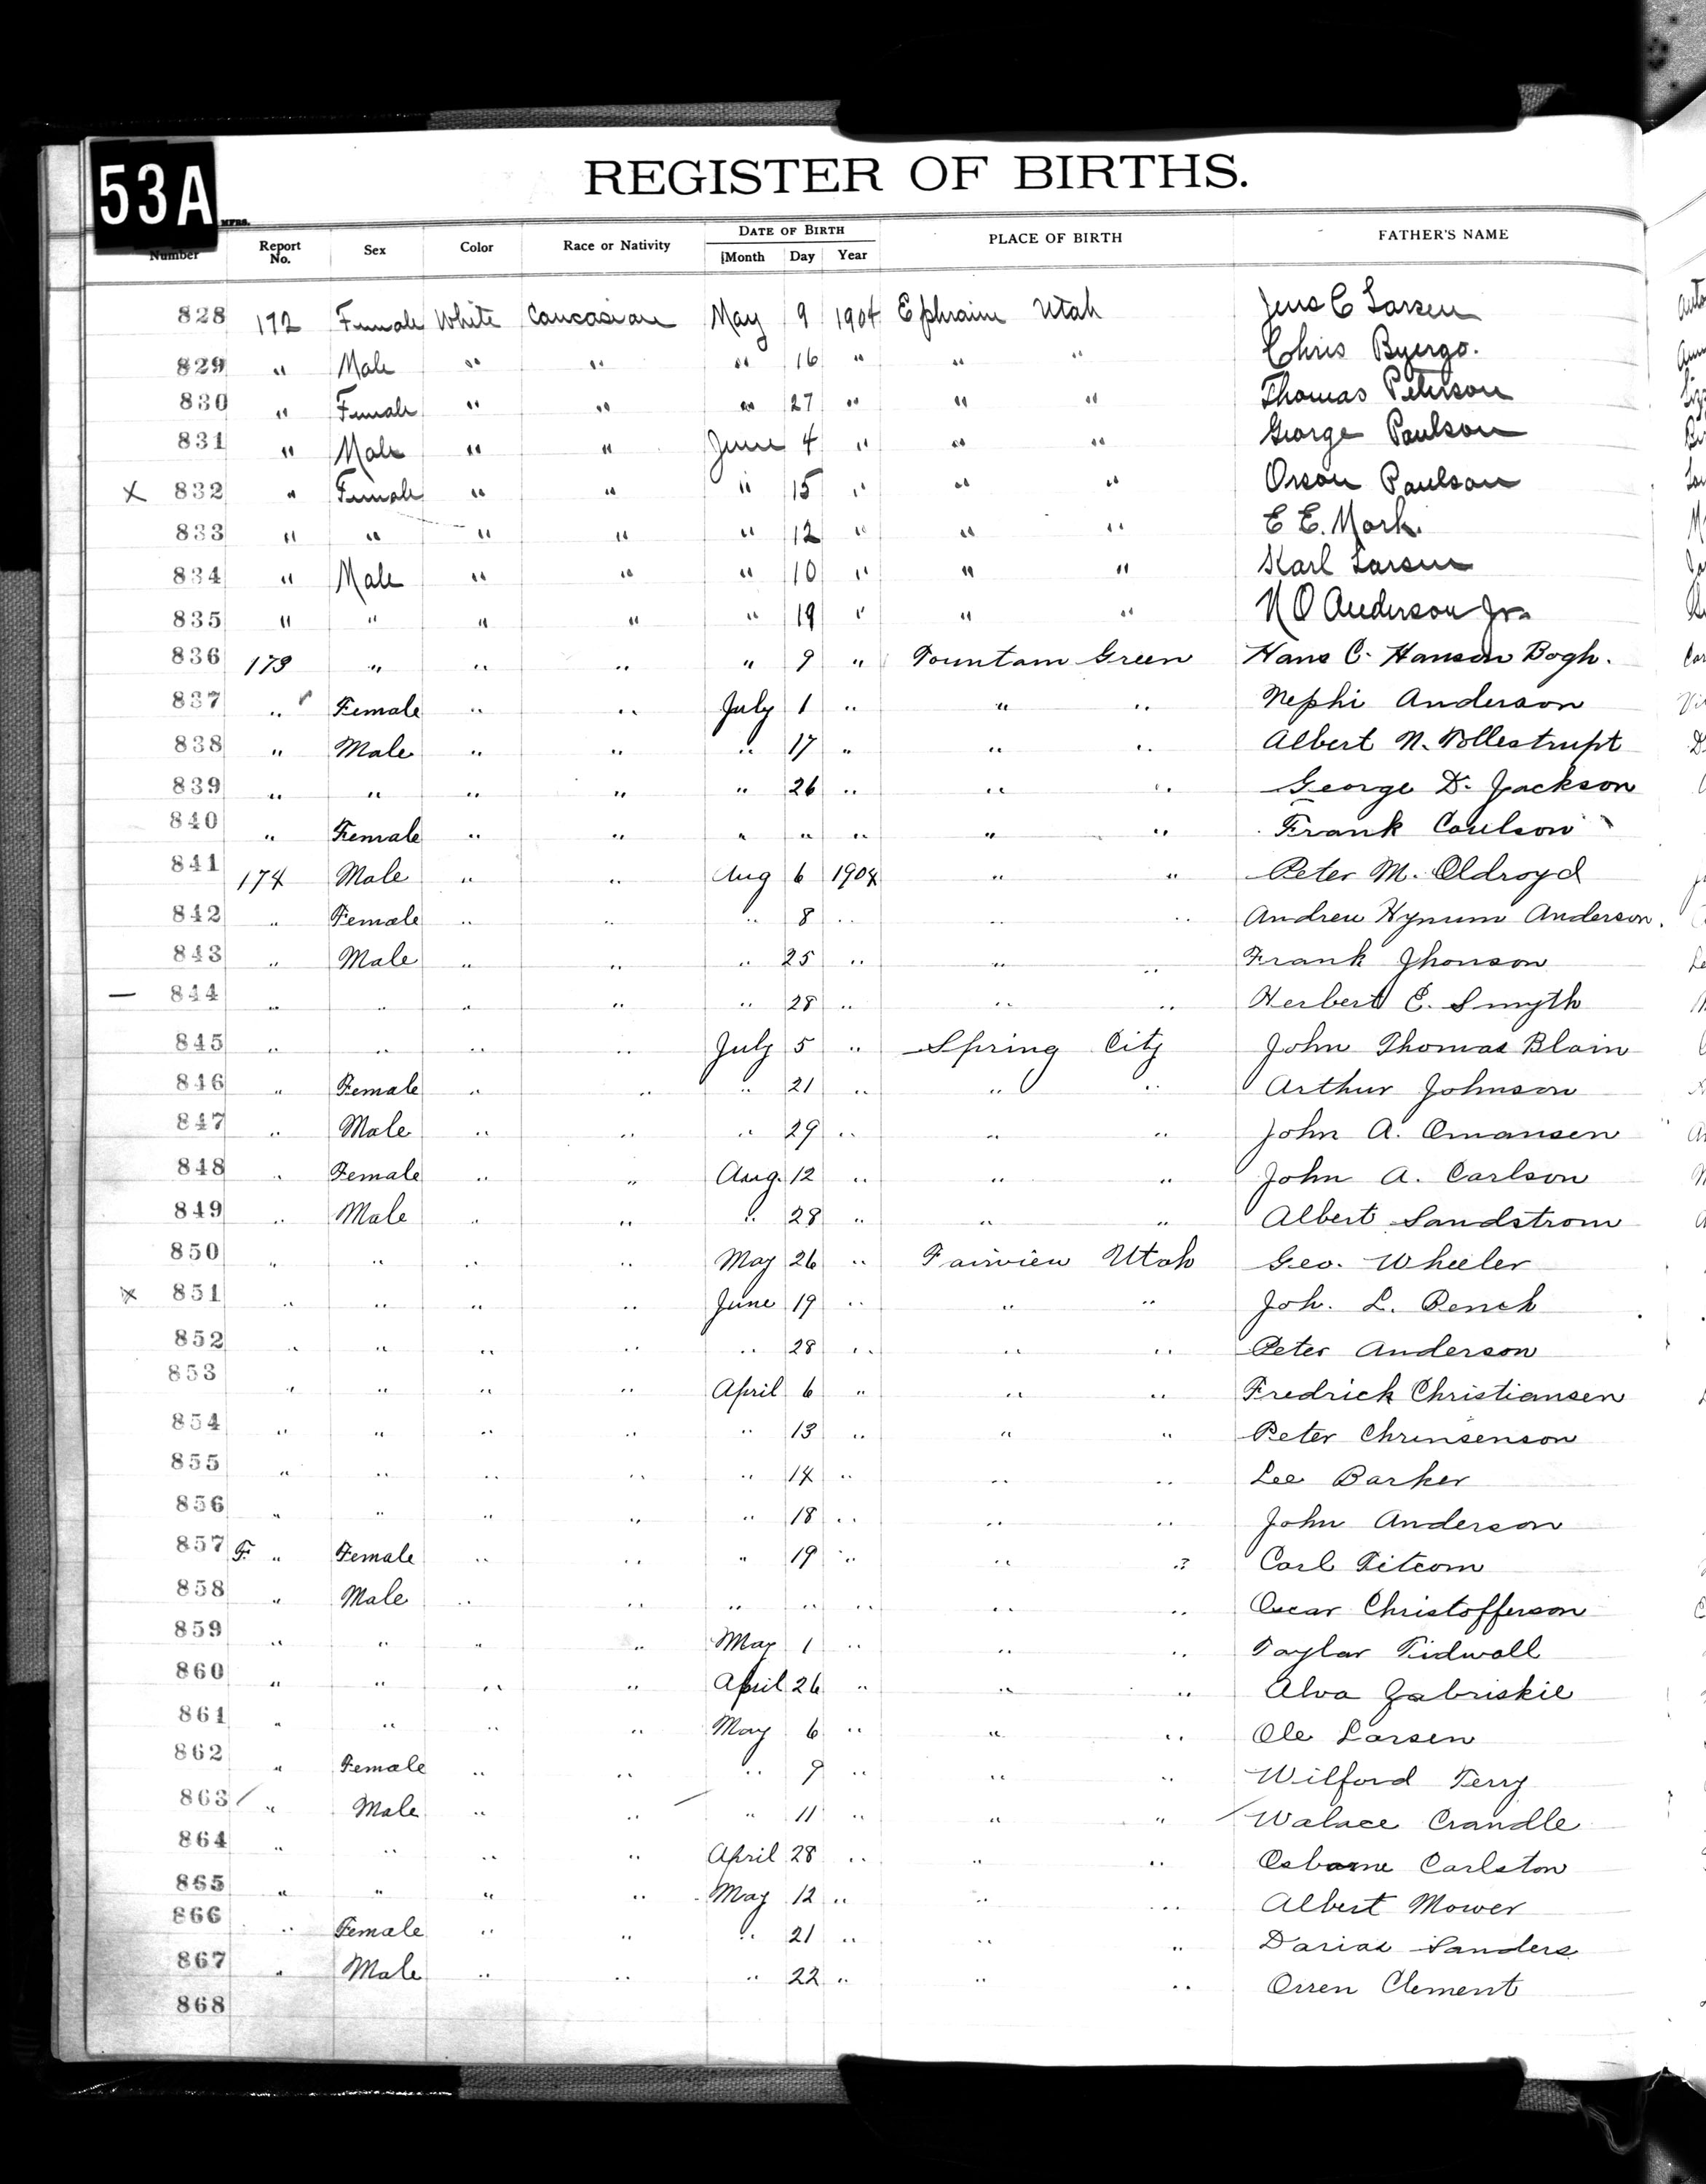 53A
MFRS.
REGISTER OF BIRTHS.
Number Report No. Sex Color Race or Nativity DATE OF BIRTH Month Day Year PLACE OF BIRTH FATHER'S NAME
828 172 Female White Caucasian May 9 1904 Ephraim Utah Jens C Larsen
829 " Male " " " 16 " " " Chris Byergo.
830 " Female " " " 27 " " " Thomas Peterson
831 " Male " " June 4 " " " George Paulson
X 832 " Female " " " 15 " " " Orson Paulson
833 " " " " " 12 " " " E E. Mork.
834 " Male " " " 10 " " " Karl Larsen
835 " " " " " 19 " " " N O Anderson Jr.
836 173 " " " " 9 " Fountain Green Hans C. Hanson Bogh.
837 " Female " " July 1 " " " Nephi Anderson
838 " Male " " " 17 " " " Albert N.
839 " " " " " 26 " " " George D. Jackson
840 " Female " " " " " " " Frank Coulson
841 174 Male " " Aug 6 1904 " " Peter M. Oldroyd
842 " Female " " " 8 " " " Andrew Hyrum Anderson.
843 " Male " " " 25 " " " Frank Jhonson
— 844 " " " " " 28 " " " Herbert E. Smyth
845 " " " " July 5 " Spring City John Thomas Blain
846 " Female " " " 21 " " " Arthur Johnson
847 " Male " " " 29 " " " John A. Omansen
848 " Female " " Aug. 12 " " " John A. Carlson
849 " Male " " " 28 " " " Albert Sandstrom
850 " " " " May 26 " Fairview Utah Geo. Wheeler
X 851 " " " " June 19 " " " Joh. L. Bench
852 " " " " " 28 " " " Peter Anderson
853 " " " " April 6 " " " Fredrick Christiansen
854 " " " " " 13 " " " Peter
855 " " " " " 14 " " " Lee Barker
856 " " " " " 18 " " " John Anderson
857 F. " Female " " " 19 " " " Carl Titcom
858 " Male " " " " " " " Oscar Christofferson
859 " " " " May 1 " " " Taylar Tidwall
860 " " " " April 26 " " " Alva Zabriskie
861 " " " " May 6 " " " Ole Larsen
862 " Female " " " 9 " " " Wilford Terry
863 " Male " " " 11 " " " Walace Crandle
864 " " " " April 28 " " " Osborne Carlston
865 " " " " May 12 " " " Albert Mower
866 " Female " " " 21 " " " Darias Sanders
867 " Male " " " 22 " " " Orren Clement
868